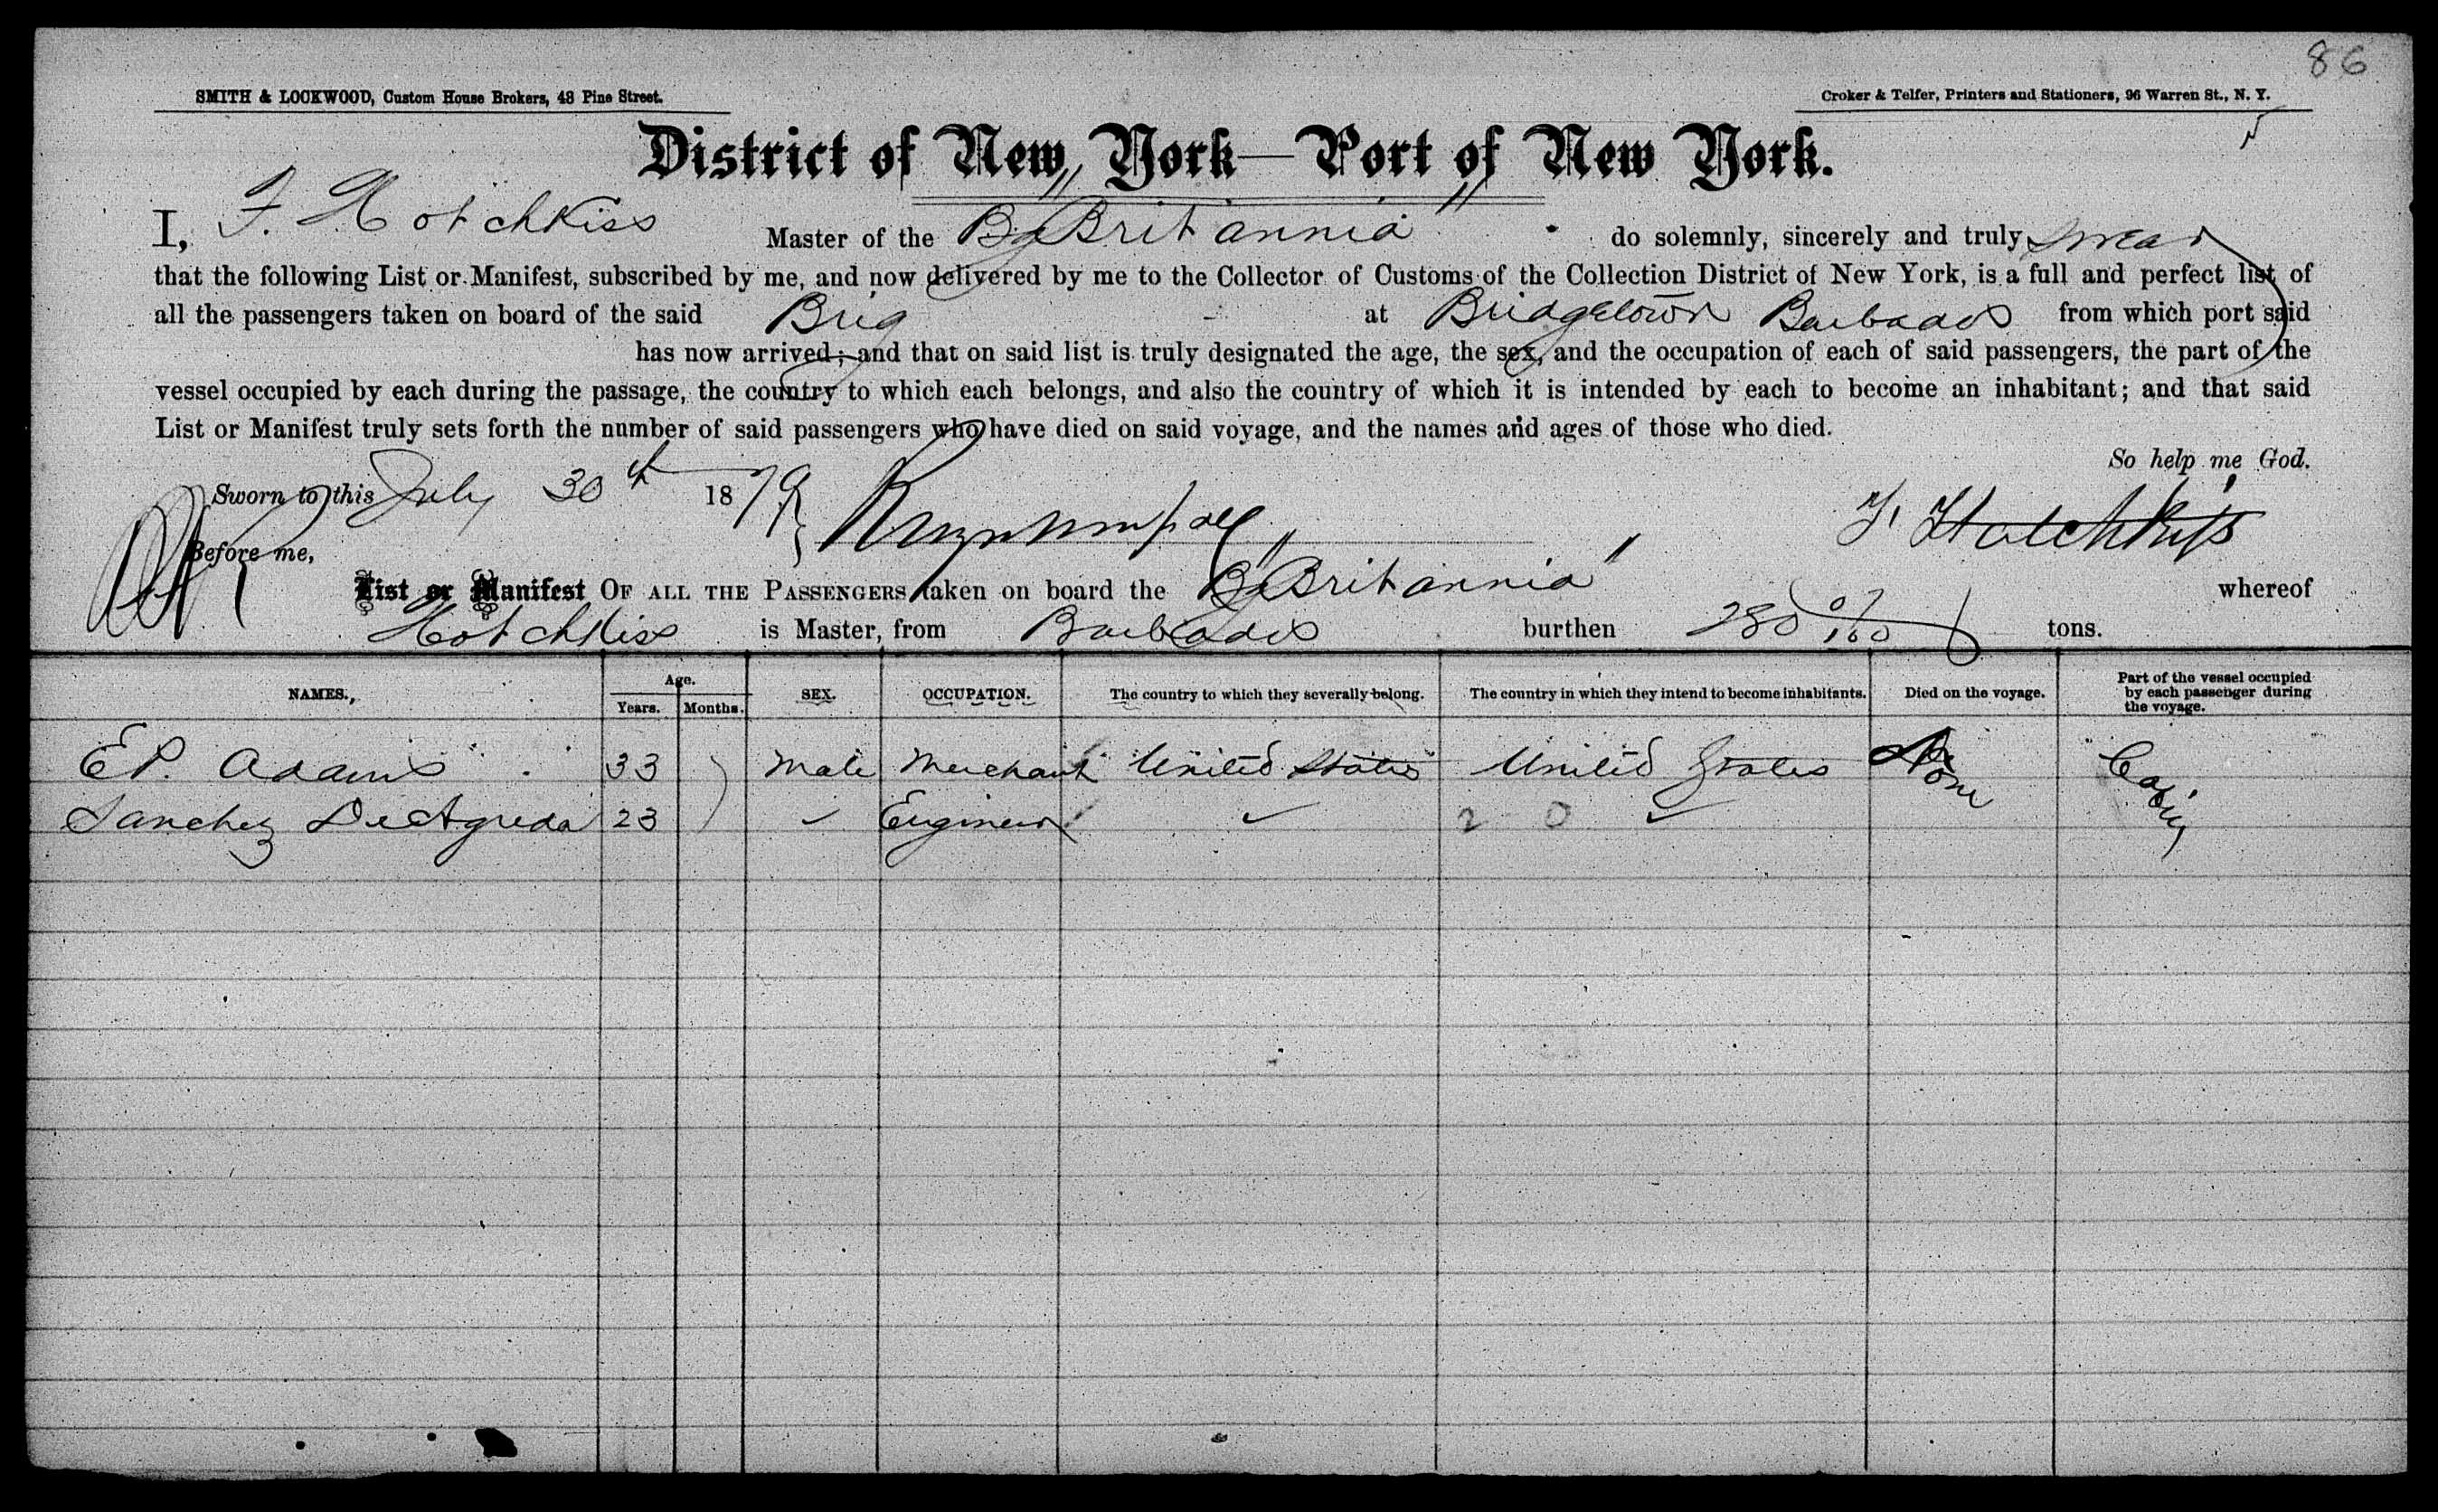 86
SMITH & LOCKWOOD, Custom House Brokers, 48 Pine Street. Croker & Telfer, Printers and Stationers, 96 Warren St., N. Y.
District of New York—Port of New York.
I, F. Hotchkiss Master of the Bg "Britannia" do solemnly, sincerely and truly swear
that the following List or Manifest, subscribed by me, and now delivered by me to the Collector of Customs of the Collection District of New York, is a full and perfect list of
all the passengers taken on board of the said Brig at Bridgetown Barbados from which port said
has now arrived; and that on said list is truly designated the age, the sex, and the occupation of each of said passengers, the part of the
vessel occupied by each during the passage, the country to which each belongs, and also the country of which it is intended by each to become an inhabitant; and that said
List or Manifest truly sets forth the number of said passengers who have died on said voyage, and the names and ages of those who died.
So help me God.
Sworn to this July 30th 1879 F. Hotchkiss
Before me,
List or Manifest OF ALL THE PASSENGERS taken on board the Bg "Britannia" whereof
Hotchkiss is Master, from Barbados burthen 280 07/100 tons.
NAMES. Age. Years. Months. SEX. OCCUPATION. The country to which they severally belong. The country in which they intend to become inhabitants. Died on the voyage. Part of the vessel occupied by each passenger during the voyage.
E P. Adams 33 Male Merchant United States United States None Cabin
Sanchez DeAgreda 23 ✓ Engineer ✓ 2 0 ✓